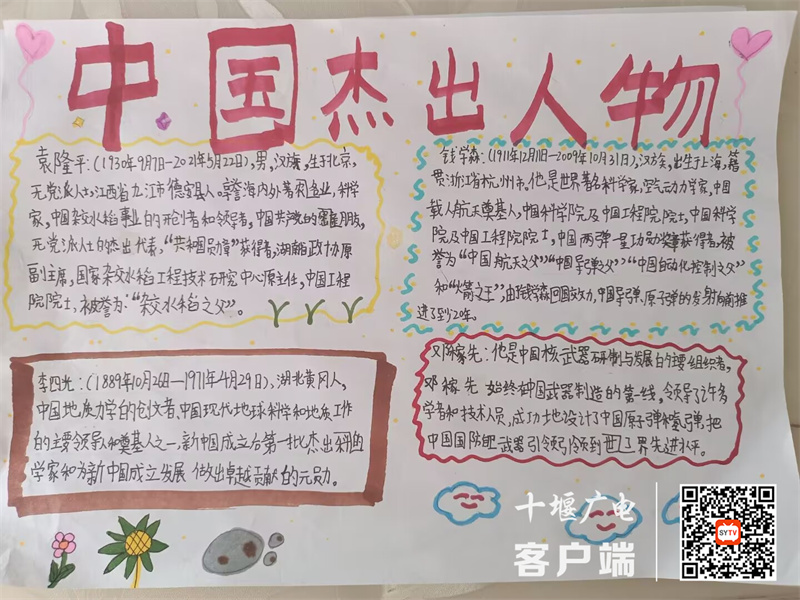 中国杰出人物
袁隆平:(1930年9月7日-2021年5月22日),男,汉族,生于北京,
无党派人士,江西省九江市德安县人。享誉海内外著名农业科学
家,中国杂交水稻事业的开创者和领导者,中国共产党的亲密朋友,
无党派人士的杰出代表,“共和国勋章”获得者,湖南省政协原
副主席,国家杂交水稻工程技术研究中心原主任,中国工程
院院士,被誉为:“杂交水稻之父”。
钱学森:(1911年12月11日-2009年10月31日),汉族,出生于上海,籍
贯浙江省杭州市。他是世界著名科学家,空气动力学家,中国
载人航天奠基人,中国科学院及中国工程院院士,中国科学
院及中国工程院院士,中国两弹一星功勋奖章获得者,被
誉为“中国航天之父”“中国导弹之父”“中国自动化控制之父”
和“火箭之王”,由于钱学森回国效力,中国导弹、原子弹的发射向前推
进了到少20年。
李四光:(1889年10月26日—1971年4月29日),湖北黄冈人,
中国地质力学的创立者、中国现代地球科学和地质工作
的主要领导人和奠基人之一,新中国成立后第一批杰出的
学家和为新中国成立发展做出卓越贡献的元勋。
邓稼先:他是中国核武器研制与发展的主要组织者,
邓稼先始终在中国武器制造的第一线,领导了许多
学者和技术人员,成功地设计了中国原子弹和氢弹,把
中国国防自卫武器引领到了世界先进水平。
十堰广电
客户端
SYTV